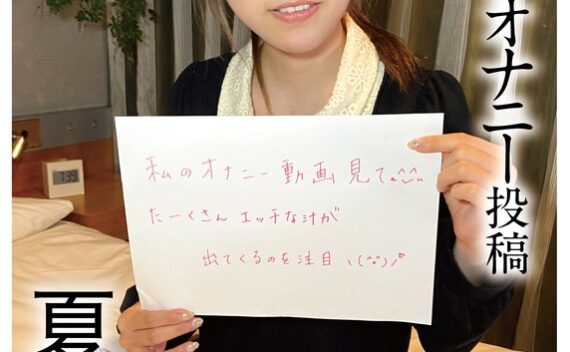 オナニー投稿
私のオナニー動画見て^^
たーくさんエッチな汁が
出てくるのを注目ヽ(^^)ノ
夏